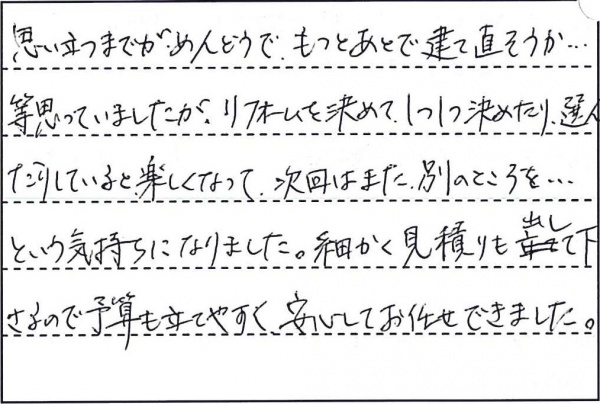 思い立つまでがめんどうで、もっとあとで建て直そうか…
等思っていましたが、リフォームを決めて、1つ1つ決めたり、選ん
だりしていると楽しくなって、次回はまた、別のところを…
という気持ちになりました。細かく見積りも出して下
さるので予算も立てやすく、安心してお任せできました。